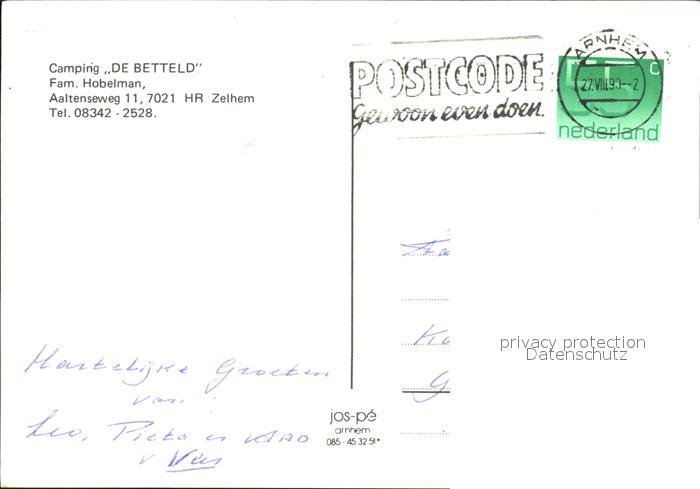 Camping „DE BETTELD”
Fam. Hobelman,
Aaltenseweg 11, 7021 HR Zelhem
Tel. 08342 - 2528.
POSTCODE
Gewoon even doen.
ARNHEM
27.VIII.90--2
c
nederland
privacy protection
Datenschutz
Hartelijke Groeten
van:
Leo,
jos-pé
arnhem
085-45 32 51*